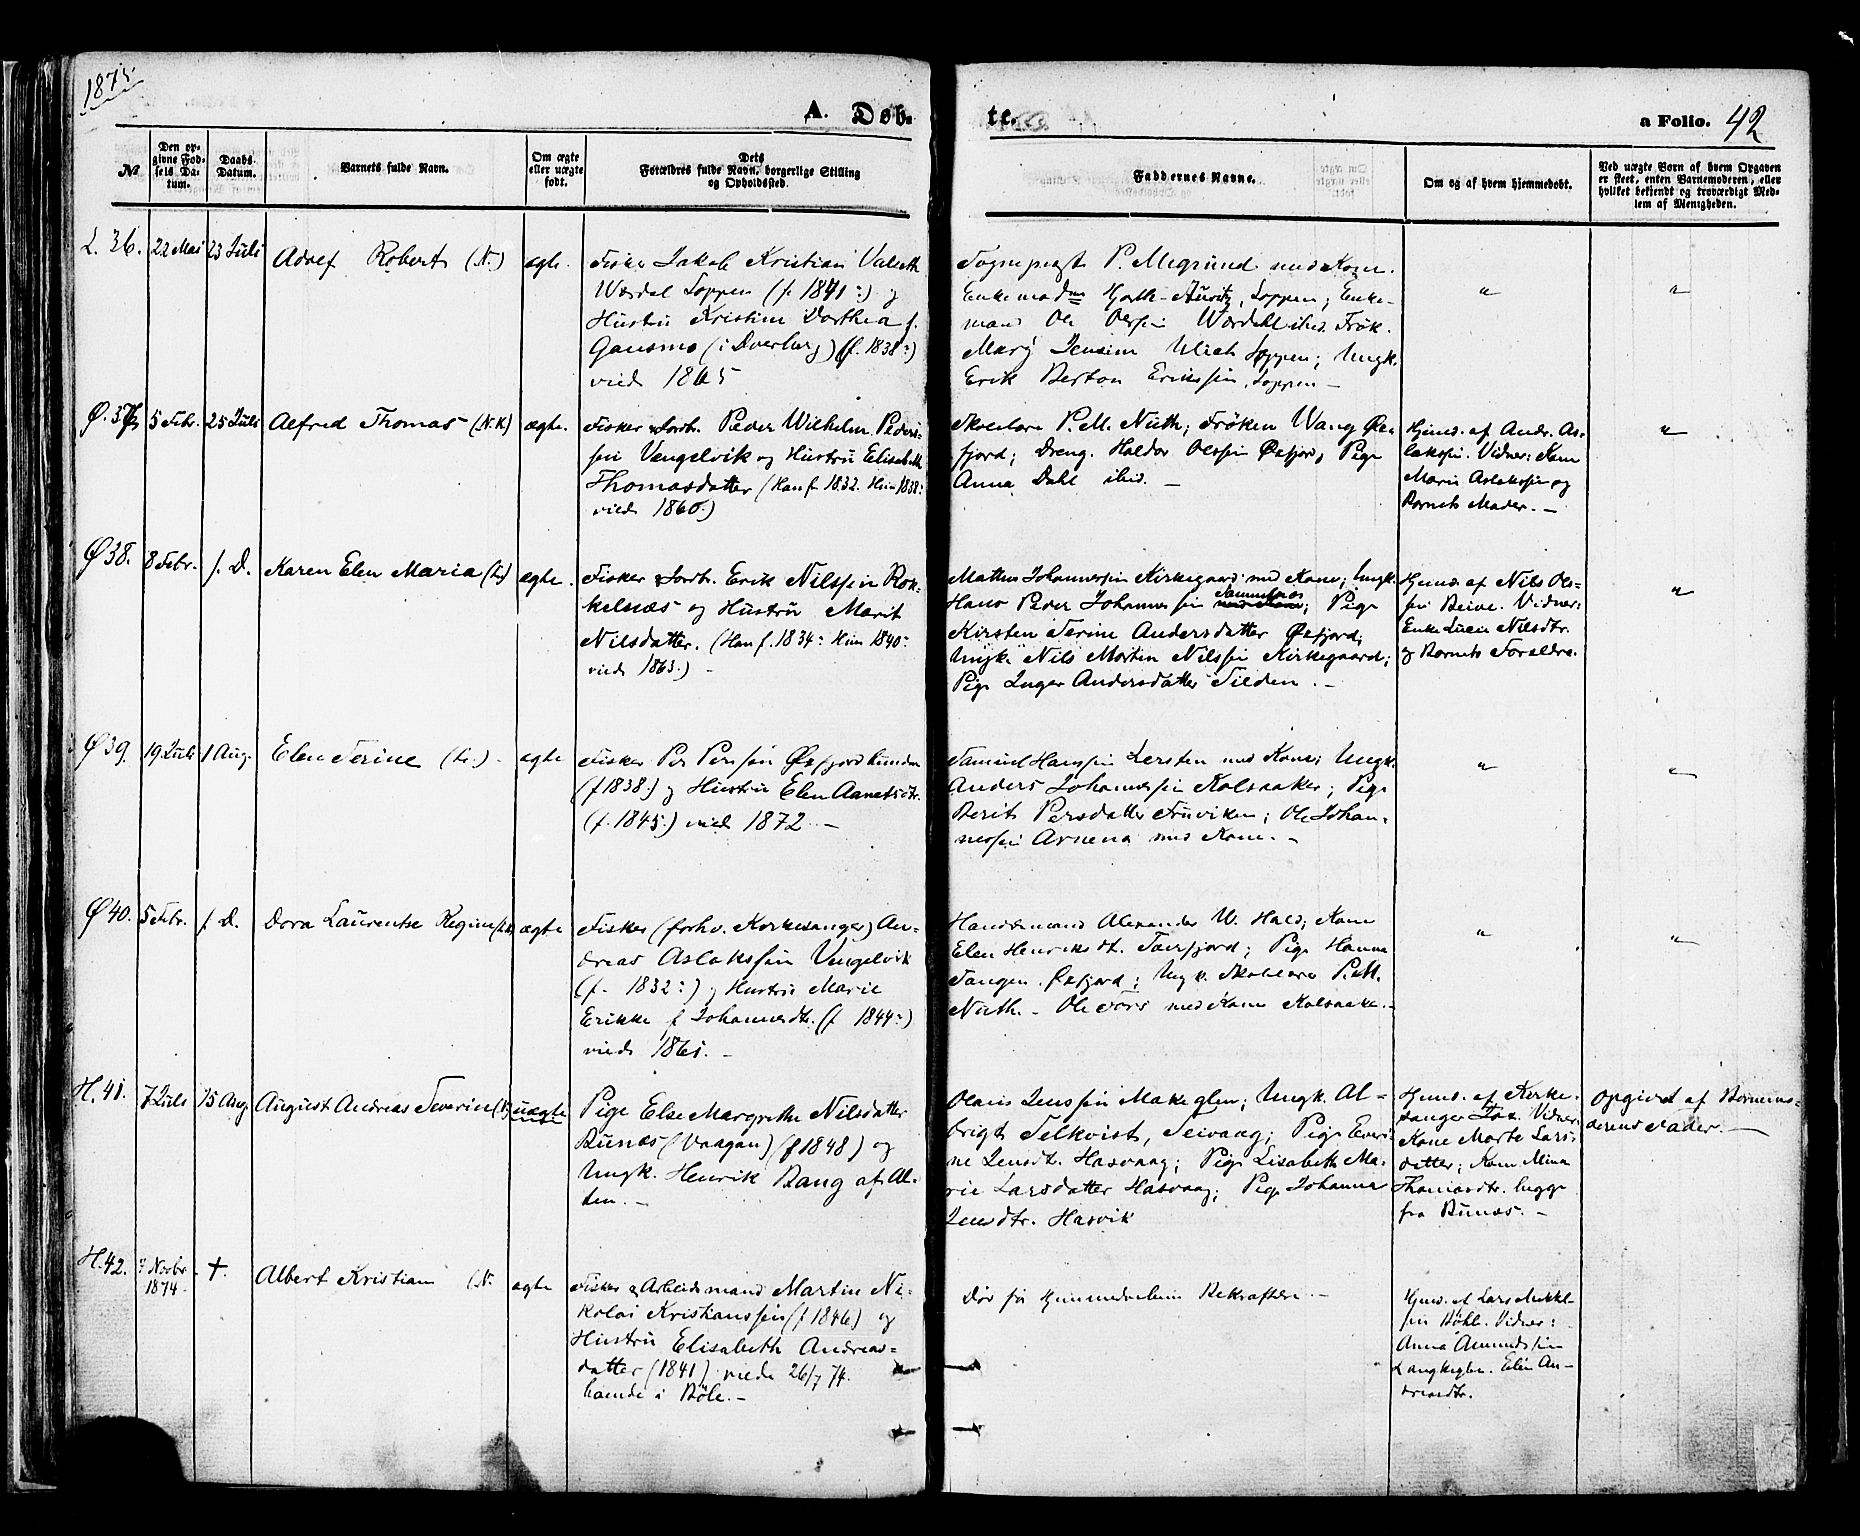 1875.
A. Døb-
te.
a Folio. 42
No
Den op-
givne Fød-
sels Da-
tum.
Daabs-
Datum.
Barnets fulde Navn.
Om ægte
eller uægte
født.
Dets
Forældres fulde Navn, borgerlige Stilling
og Opholdssted.
Faddernes Navne.
Om og af hvem hjemmedøbt.
Ved uægte Børn af hvem Opgaven
er skeet, enten Barnemoderen, eller
hvilket bekjendt og troværdigt Med-
lem af Menigheden.
L. 36.
22 Mai
23 Juli
Adolf Robert (N.)
ægte.
Fisker Jakob Kristian
Værdal Loppen (f. 1841:) og
Hustru Kristine Dorthea f.
(i Dverberg) (f. 1838:)
viede 1865
Sogneprest P. med Kone.
Enkemadm , Loppen; Enke-
mand Ole Olssen Værdahl ibid. Frøk.
Mary Jensine Ulich Loppen; Ungk.
Erik Berton Erikssen, Loppen -
"
"
Ø. 37
5 Febr.
25 Juli
Alfred Thomas (N.K)
ægte.
Fisker & Jordb. Peder Wilhelm Peders-
sen Vengelvik og Hustru Elisabeth
Thomasdatter (Han f. 1832. Hun 1838:
viede 1860.)
Skolelærer P. M. Nuth; Frøken Wang Øx-
fjord; Dreng. Haldor Olssen Øxfjord, Pige
Anna Dahl ibid. -
Hjmd. af Andr. As-
lakssen. Vidner: Kone
Marie Aslakssen og
Barnets Moder. -
"
Ø 38.
8 Febr.
s. D.
Karen Elen Maria (Lp)
ægte.
Fisker & Jordb. Erik Nilssen Rok-
kelnæs og Hustru Marit
Nilsdatter. (Han f. 1834: Hun 1840:
viede 1863.) -
Mathis Johannessen Kirkegaard med Kone; Ungk.
Hans Peder Johannessen med Kone; Pige
Kirsten Serine Andersdatter Øxfjord;
Ungk. Nils Morten Nilssen Kirkegaard;
Pige Inger Andersdatter Tilden. -
Hjmd. af Nils Ols-
sen Beive. Vidner:
Enke Lucie Nilsdtr.
og Barnets Forældre.
"
Ø 39.
19 Juli
1 Aug.
Elen Serine (Lp.) -
ægte
Fisker Per Perssen Øxfjordbunden
(f 1838.) og Hustru Elen
(f. 1845.) viede 1872 -
Samuel Hanssen Lersten med Kone; Ungk.
Anders Johannessen Kolsaaker; Pige
Berit Persdatter ; Ole Johan-
nessen Arnena med Kone. -
"
"
Ø 40.
5 Febr.
s. D.
Dora Laurentse Regine
ægte
Fisker (forhv. Kirkesanger) An-
dreas Aslakssen Vengelvik
(f. 1832:) og Hustru Marie
Erikke f Johannesdtr. (f 1844:)
viede 1861. -
Handelsmand Alexander W. Hald; Kone
Elen Henriksdt. ; Pige Hanna
Tangen Øxfjord; Ungk. Skolelærer P. M.
Nuth. - Ole med Kone Kolsaaker. -
"
"
H. 41.
7 Juli
15 Aug.
August Andreas Severin
uægte
Pige Else Margrethe Nilsdatter
Bunæs (Vaagan) (f 1848) og
Ungk. Henrik Bang af Al-
ten. -
Olaus Jenssen Makeglen; Ungk. Al-
brigt Selkvist, Seivaag; Pige Everi-
ne Jensdtr. Hasvaag; Pige Lisabeth Ma-
rie Larsdatter Hasvaag; Pige Johanna
Jensdtr. Hasvik
Hjmd. af Kirke-
sanger . Vidner
Kone Marte Lars-
datter; Kone Mina
fra Bunæs. -
Opgivet af Barnemo-
derens Fader. -
H. 42.
7 Novbr.
1874
+.
Albert Kristian (N.
ægte
Fisker & Arbeidsmand Martin Ni-
kolai Kristianssen (f 1846) og
Hustru Elisabeth Andreas-
datter (1841) viede 26/7 74.
i Bøle. -
Død før Hjemmedaabens Bekræftelse. -
Hjmd. af Lars Mikkel-
sen Bøhle. Vidner:
Anna Amundssen
. Elen An-
dreasdtr.